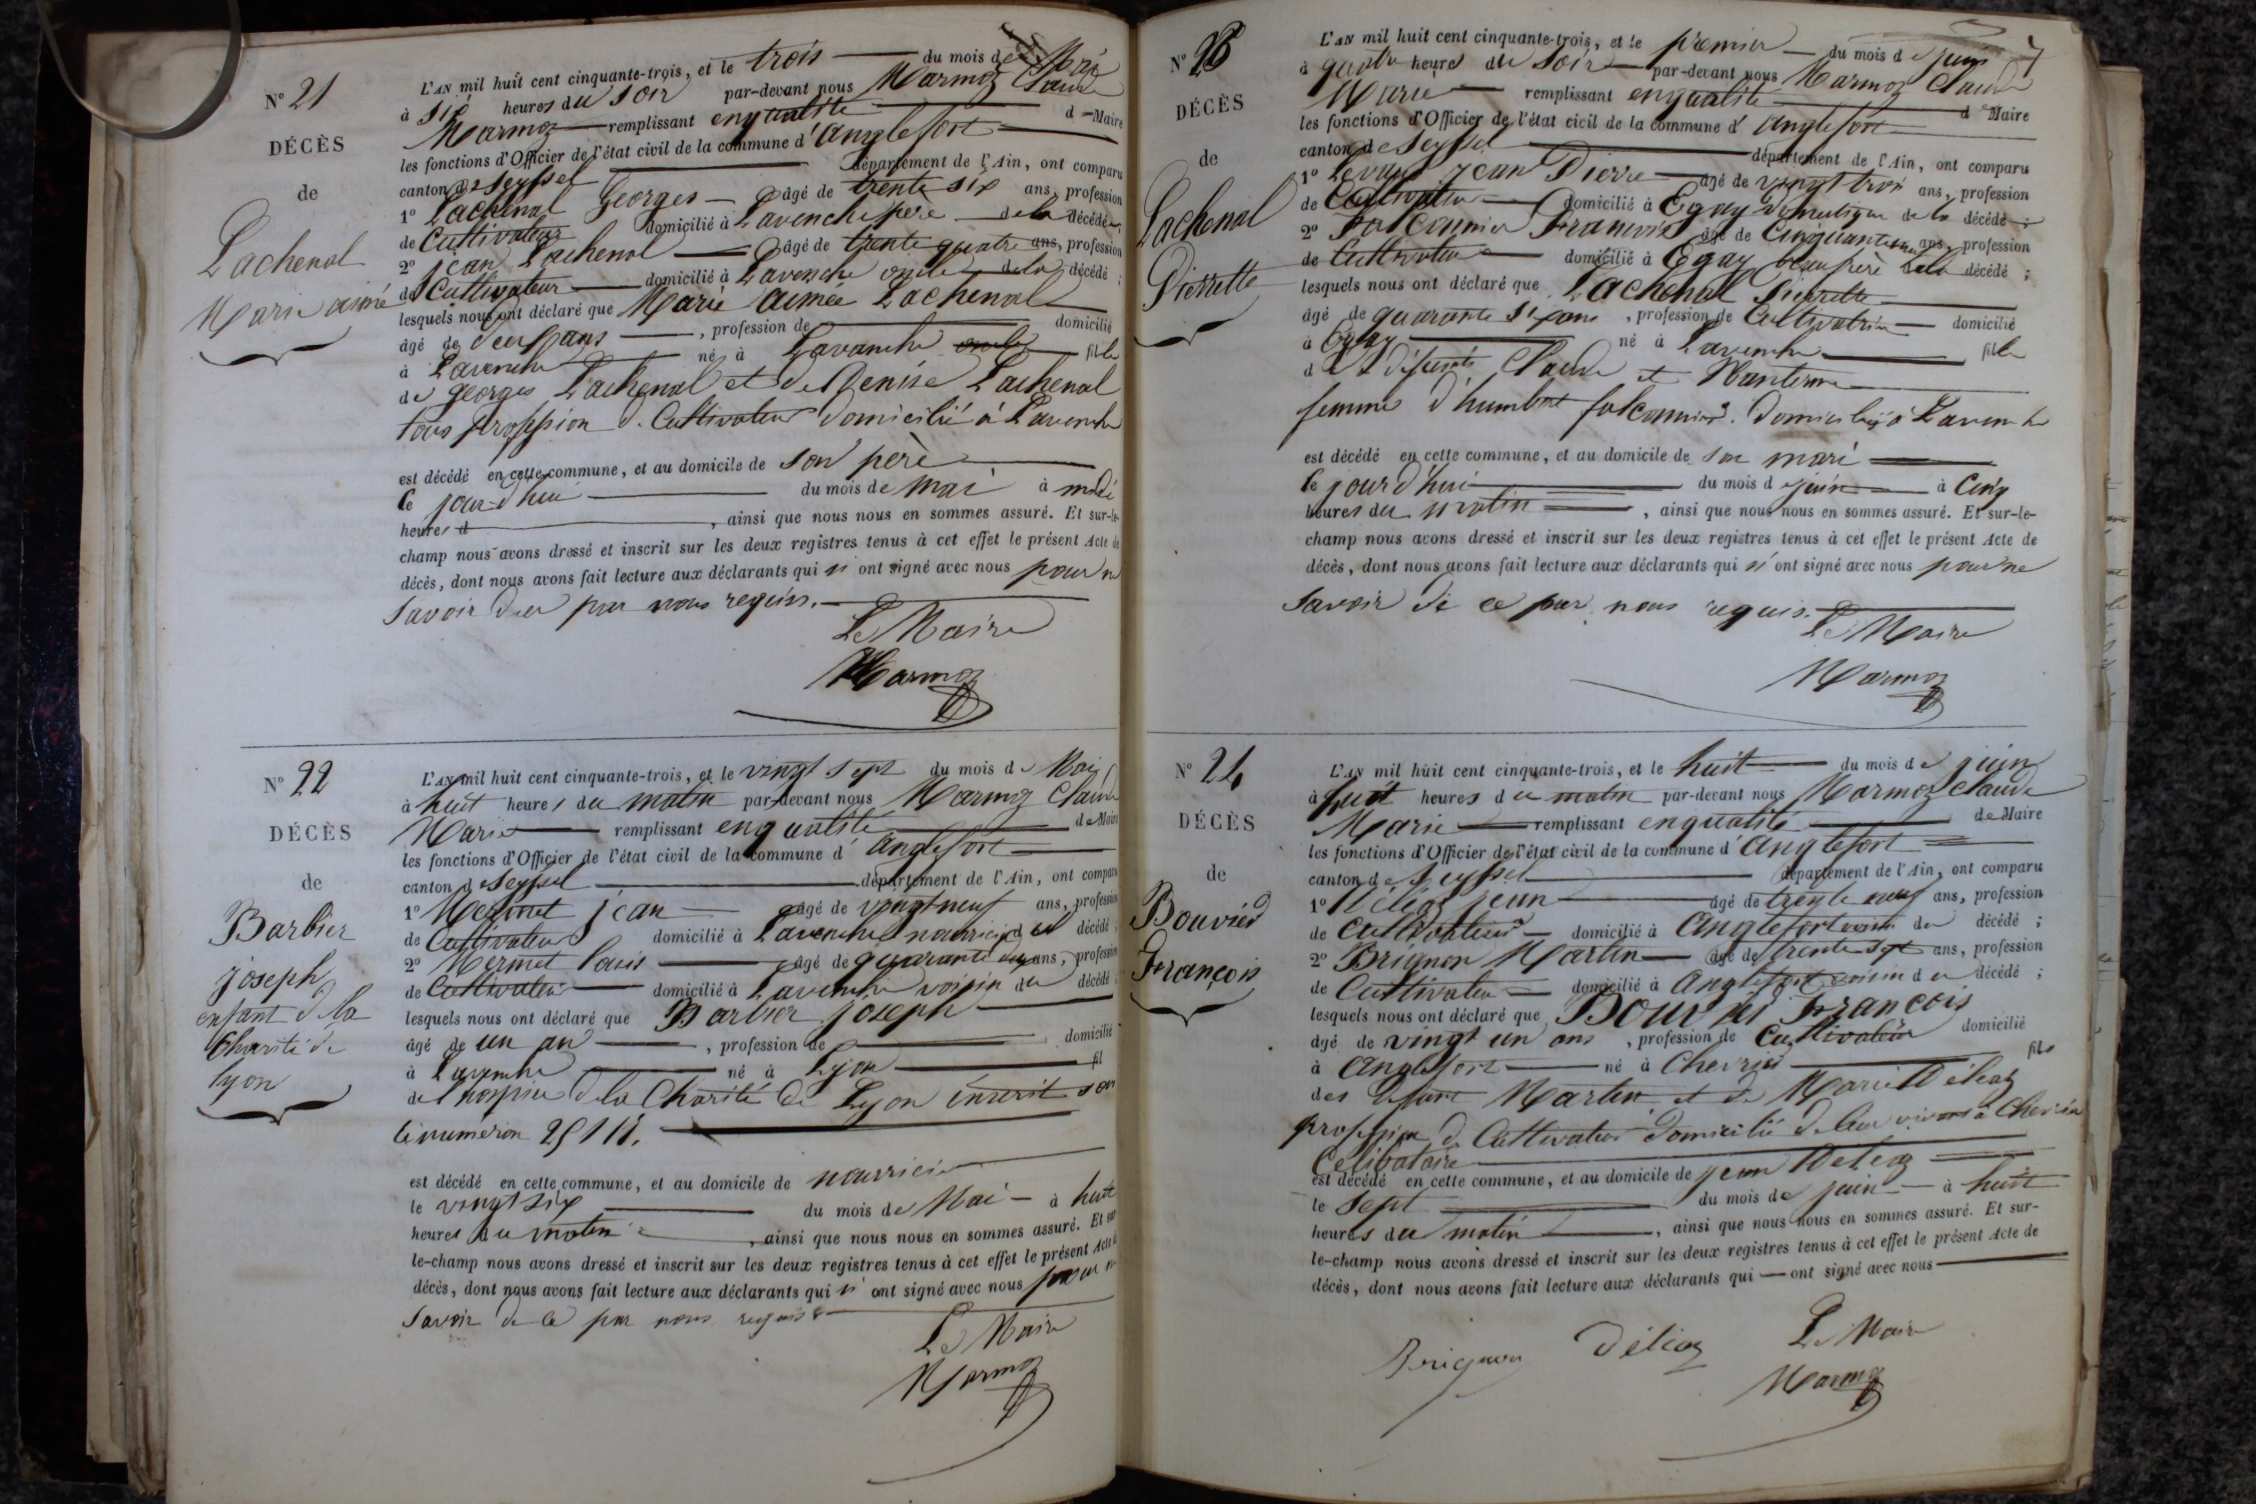 N° 21
DÉCÈS
de
Lachenal
Marie aimé
L'AN mil huit cent cinquante-trois, et le trois du mois de Mai
à six heures du soir par-devant nous Marmoz Claude
Marmoz remplissant en qualité d Maire
les fonctions d'Officier de l'état civil de la commune d'anglefort
canton de Seyssel département de l'Ain, ont comparu
1° Lachenal Georges âgé de trente six ans, profession
de Cultivateur domicilié à Lavenche père de la décédé ;
2° jean Lachenal âgé de trente quatre ans, profession
de Cultivateur domicilié à Lavenche oncle de la décédé ;
lesquels nous ont déclaré que Marie aimée Lachenal
âgé de deux ans , profession de domicilié
à Lavenche né à Lavanche fille
de georges Lachenal et de Denise Lachenal
tous profession de Cultivateur domicilié à Lavenche
est décédé en cette commune, et au domicile de son père
le jourd'hui du mois de mai à midi
heures d , ainsi que nous nous en sommes assuré. Et sur-le-
champ nous avons dressé et inscrit sur les deux registres tenus à cet effet le présent Acte de
décès, dont nous avons fait lecture aux déclarants qui n' ont signé avec nous pour ne
savoir de ce par nous requis.
Le Maire
Marmoz
N° 22
DÉCÈS
de
Barbier
joseph
enfant de la
Charité de
lyon
L'AN mil huit cent cinquante-trois, et le vingt sept du mois de Mai
à huit heures du matin par-devant nous Marmoz Claude
Marie remplissant en qualité de Maire
les fonctions d'Officier de l'état civil de la commune d'anglefort
canton de Seyssel département de l'Ain, ont comparu
1° Mermet jean âgé de vingt neuf ans, profession
de Cultivateur domicilié à Lavenche nourricier du décédé ;
2° Mermet louis âgé de quarante ans, profession
de Cultivateur domicilié à Lavenche voisin du décédé ;
lesquels nous ont déclaré que Barbier joseph
âgé de un an , profession de domicilié
à Lavenche né à Lyon fil
de l'hospice de la Charité de Lyon inscrit sous
le numéron
est décédé en cette commune, et au domicile de nourricier
le vingt six du mois de Mai à huit
heures du matin , ainsi que nous nous en sommes assuré. Et sur
le-champ nous avons dressé et inscrit sur les deux registres tenus à cet effet le présent Acte de
décès, dont nous avons fait lecture aux déclarants qui n' ont signé avec nous pour ne
savoir de ce par nous requis
Le Maire
Marmoz
N° 23
DÉCÈS
de
Lachenal
Pierrette
7
L'AN mil huit cent cinquante-trois, et le premier du mois de juin
à quatre heures du soir par-devant nous Marmoz Claude
Marie remplissant en qualité d Maire
les fonctions d'Officier de l'état civil de la commune d'anglefort
canton de Seyssel département de l'Ain, ont comparu
1° jean Pierre âgé de vingt trois ans, profession
de Cultivateur domicilié à Egay domestique de la décédé ;
2° Falconnier François âgé de cinquante ans, profession
de Cultivateur domicilié à Egay beaupère de la décédé ;
lesquels nous ont déclaré que Lachenal Pierrette
âgé de quarante six ans , profession de Cultivatrice domicilié
à Egay né à Lavenche fille
d défunts Claude et
femme d'humbert falconnier domiciliés à Lavenche
est décédé en cette commune, et au domicile de son mari
le jourd'hui du mois d juin à Cinq
heures du matin , ainsi que nous nous en sommes assuré. Et sur-le-
champ nous avons dressé et inscrit sur les deux registres tenus à cet effet le présent Acte de
décès, dont nous avons fait lecture aux déclarants qui n' ont signé avec nous pour ne
savoir de ce par nous requis.
Le Maire
Marmoz
N° 24
DÉCÈS
de
Bouvier
François
L'AN mil huit cent cinquante-trois, et le huit du mois de juin
à huit heures du matin par-devant nous Marmoz Claude
Marie remplissant en qualité de Maire
les fonctions d'Officier de l'état civil de la commune d'anglefort
canton de Seyssel département de l'Ain, ont comparu
1° Déléaz jean âgé de trente neuf ans, profession
de Cultivateur domicilié à anglefort voisin du décédé ;
2° Brignon Martin âgé de trente sept ans, profession
de Cultivateur domicilié à anglefort voisin du décédé ;
lesquels nous ont déclaré que Bouvier François
âgé de vingt un ans , profession de Cultivateur domicilié
à anglefort né à Chevrier fils
des défunt Martin et de Marie Déléaz
profession de Cultivateur domicilié de leur vivant à
Célibataire
est décédé en cette commune, et au domicile de jean Déléaz
le Sept du mois de juin à huit
heures du matin , ainsi que nous nous en sommes assuré. Et sur-
le-champ nous avons dressé et inscrit sur les deux registres tenus à cet effet le présent Acte de
décès, dont nous avons fait lecture aux déclarants qui ont signé avec nous
Brignon Déléaz Le Maire
Marmoz